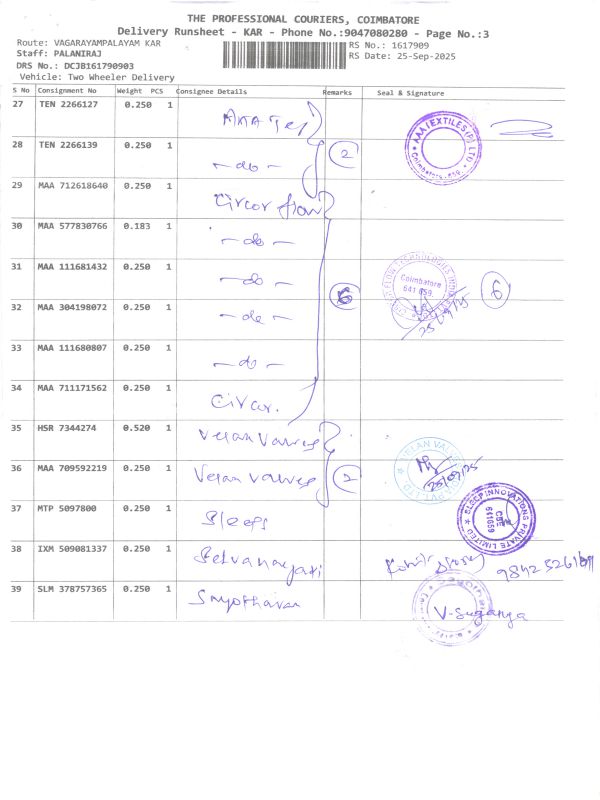 THE PROFESSIONAL COURIERS, COIMBATORE
Delivery Runsheet - KAR - Phone No.:9047080280 - Page No.:3
Route: VAGARAYAMPALAYAM KAR
RS No.: 1617909
Staff: PALANIRAJ
RS Date: 25-Sep-2025
DRS No.: DCJB161790903
Vehicle: Two Wheeler Delivery
S No Consignment No Weight PCS Consignee Details Remarks Seal & Signature
27 TEN 2266127 0.250 1 AAA Tex
AAA TEXTILES(P) LTD
Coimbatore
28 TEN 2266139 0.250 1 -do- 2
29 MAA 712618640 0.250 1 Circor flow
30 MAA 577830766 0.183 1 -do-
31 MAA 111681432 0.250 1 -do- 6
Coimbatore
641 659
6
25/09/25
32 MAA 304198072 0.250 1 -do-
33 MAA 111680807 0.250 1 -do-
34 MAA 711171562 0.250 1 Circor.
35 HSR 7344274 0.520 1 Velan Valves
36 MAA 709592219 0.250 1 Velan Valves 2
VELAN VALVES
PVT LTD
25/09/25
37 MTP 5097800 0.250 1 Sleep
SLEEP INNOVATIONS PRIVATE LIMITED
CBE
641659
38 IXM 509081337 0.250 1 Selvanayaki
39 SLM 378757365 0.250 1
V-Suganya